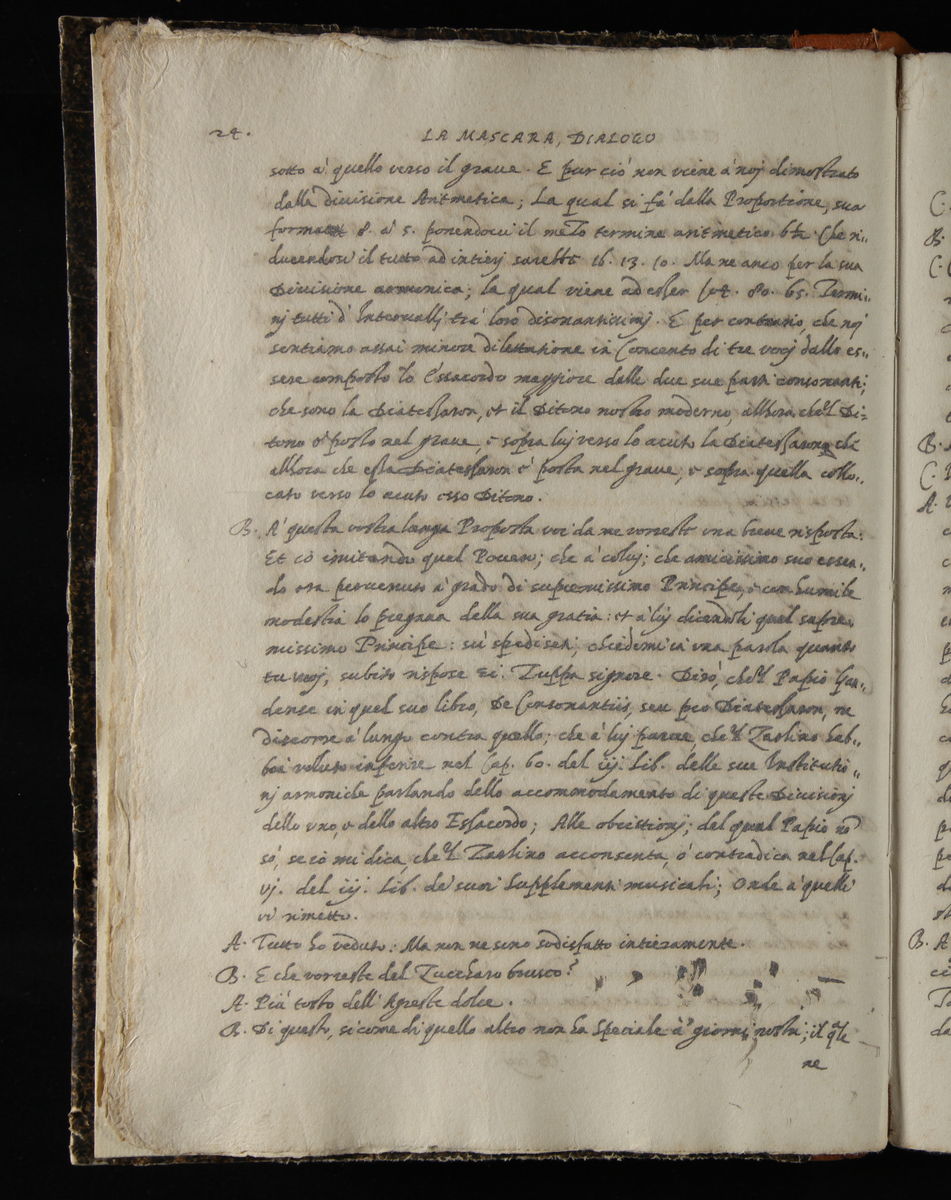 24.
LA MASCARA, DIALOGO
sotto à quello verso il graue. E pur ciò non viene à noj dimostrato
dalla diuisione Aritmetica; La qual si fà dalla Proportione, sua
forma 8. à 5. ponendoui il mezo termine aritmetico 6½. Che ri„
ducendosi il tutto ad intierj sarebbe 16. 13. 10. Ma ne anco per la sua
Diuisione armonica; la qual viene ad esser 104. 80. 65. Termi„
nj tutti d'Interuallj trà loro disonantissimj. E per contrario, che noj
sentiamo assai minore dilettatione in Concento di tre vocj dallo es„
sere composto lo Essacordo maggiore dalle due sue parti consonanti;
che sono la Diatessaron, et il Ditono nostro moderno, allhora che'l Di=
tono è posto nel graue, e sopra luj verso lo acuto la Diatessaron, che
allhora che essa Diatessaron è posta nel graue, e sopra quella collo„
cato verso lo acuto esso Ditono.
B. A' questa vostra lunga Proposta voi da me vorreste vna breue risposta.
Et ciò imitando quel Pouero; che à coluj; che amicissimo suo essen„
do era peruenuto à grado di supremissimo Principe, e con humile
modestia lo pregaua della sua gratia: et à luj dicendoli quel supre„
missimo Principe: sù spedisciti, chiedemi in vna parola quanto
tu voj, subito rispose ei. Zuppa signore. Dirò, che'l Papio
dense in quel suo libro, De Consonantiis, seu pro Diatessaron, ne
discorre à lungo contra quello; che à luj parue, che'l Zarlino hab„
bia voluto inferire nel Cap. 60. del iij. Lib. delle sue Institutio„
nj armonicle parlando dello accommodamento di queste Diuisionj
dello vno, e dello altro Essacordo; Alle obiettionj; del qual Papio nō
sò, se io mi dica, che'l Zarlino acconsenta, ò contradica nel Cap.
vj. del iij. Lib. de' suoi Supplementi musicali; Onde à quelli
vi rimetto.
A. Tutto ho veduto: Ma non ne sono sodisfatto intieramente.
B. E che vorreste del Zuccharo brusco?
A. Più tosto dell'Agreste dolce.
B. Di questo, si come di quello altro non ha Speciale à giorni nostri; il q̃le
ne